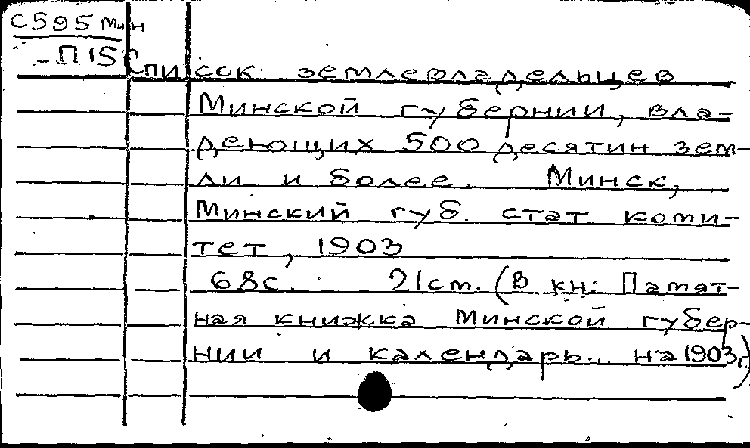 С595 Мин
-П15
Список землевладельцев
Минской губернии, вла-
деющих 500 десятин зем-
ли и более. Минск,
Минский губ. стат. коми-
тет, 1903
68с. 21см. (В кн: Памят-
ная книжка Минской губер-
нии и календарь.. на 1903г)